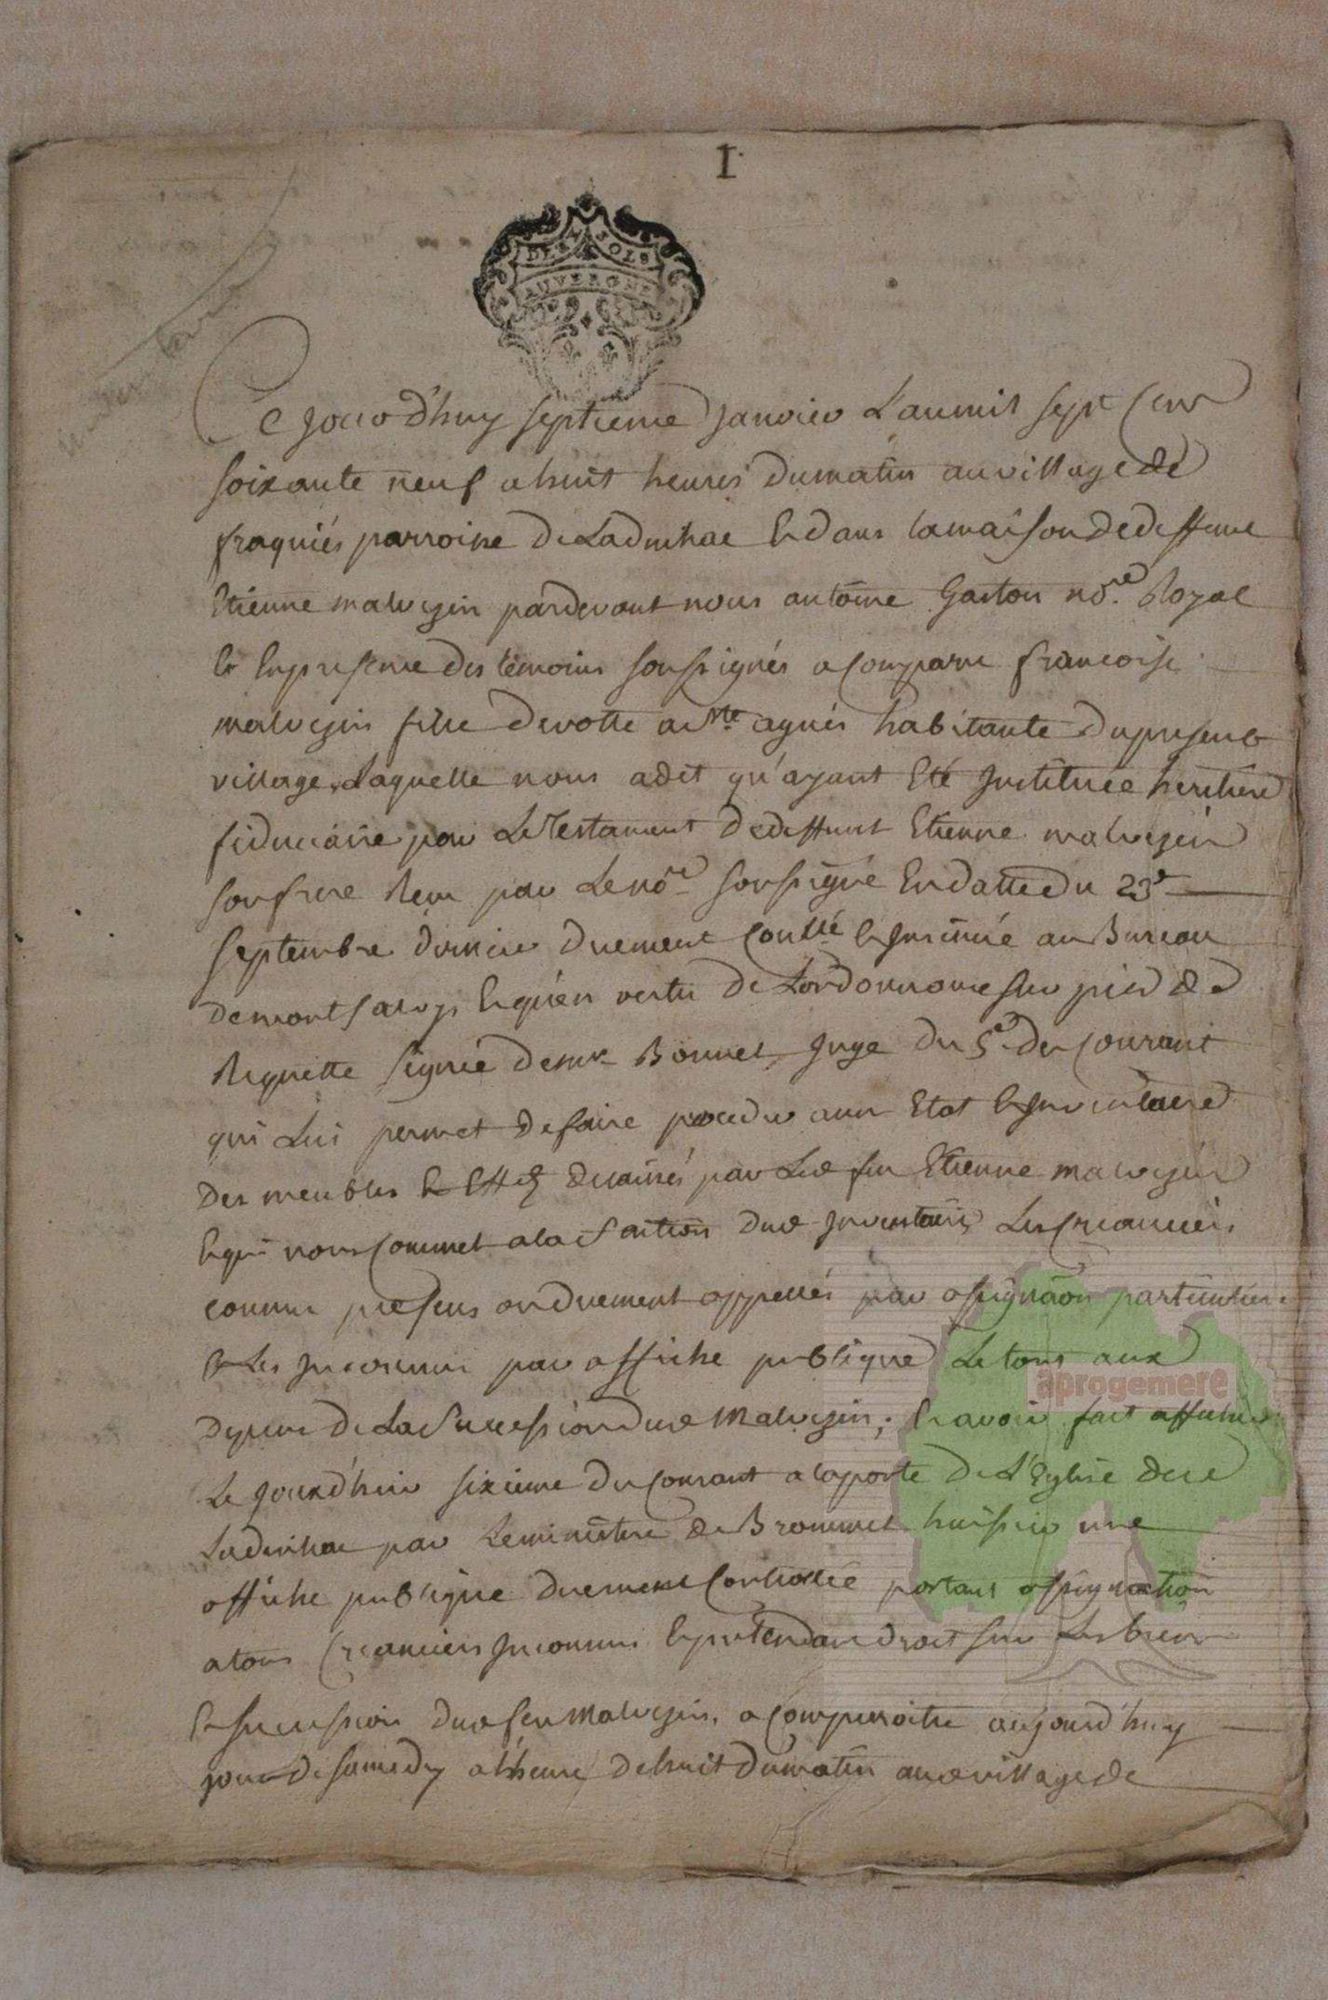 I
DEUX SOLS
AUVERGNE
inventaire
Ce jourd'huy septieme janvier L'an mil sept Cens
soixante neuf a huit heures du matin au village de
fraquiés parroisse de Ladinhac Et dans la maison de deffunt
Etienne malvezin pardevant nous antoine Gaston no.re Royal
Et En presence des temoins soussignés a Comparu francoise
malvezin fille devotte a Ste agnés habitante du present
village, Laquelle nous a dit qu'ayant Eté Instituée heritiere
fiduciaire par Le Testament de deffunt Etienne malvezin
son frere Receu par Le no.re soussigné En datte du 23e
septembre dernier duement Conllé & Insinué au Bureau
de montsalvy Et qu'en vertu de L'ordonnance sur pied de
Requette signée de mr Bonnet Juge du 5e du Courant
qui Lui permet de faire proceder a un Etat & Inventaire
Des meubles & Eff delaissés par Led feu Etienne malvezin
Et qui nous Commet a la faction dud Inventaire, Les Creanciers
connus presens ou duement appellés par assignaôn particuliere
& Les Inconnus par affiche publique Le tout aux
Depens de La Succession dud Malvezin; Et avoir fait afficher
Le jourd'hier sixieme du Courant a la porte de L'Eglise dud
Ladinhac par Le ministere de Brommet huissier une
affiche publique duement Controllée portant assignation
a tous Creanciers Inconnus Et pretendant droit sur Les biens
Et succession dud feu Malvezin, a Comparoitre aujourd'huy
jour de samedy a l'heure de huit du matin aud village de
aprogemere